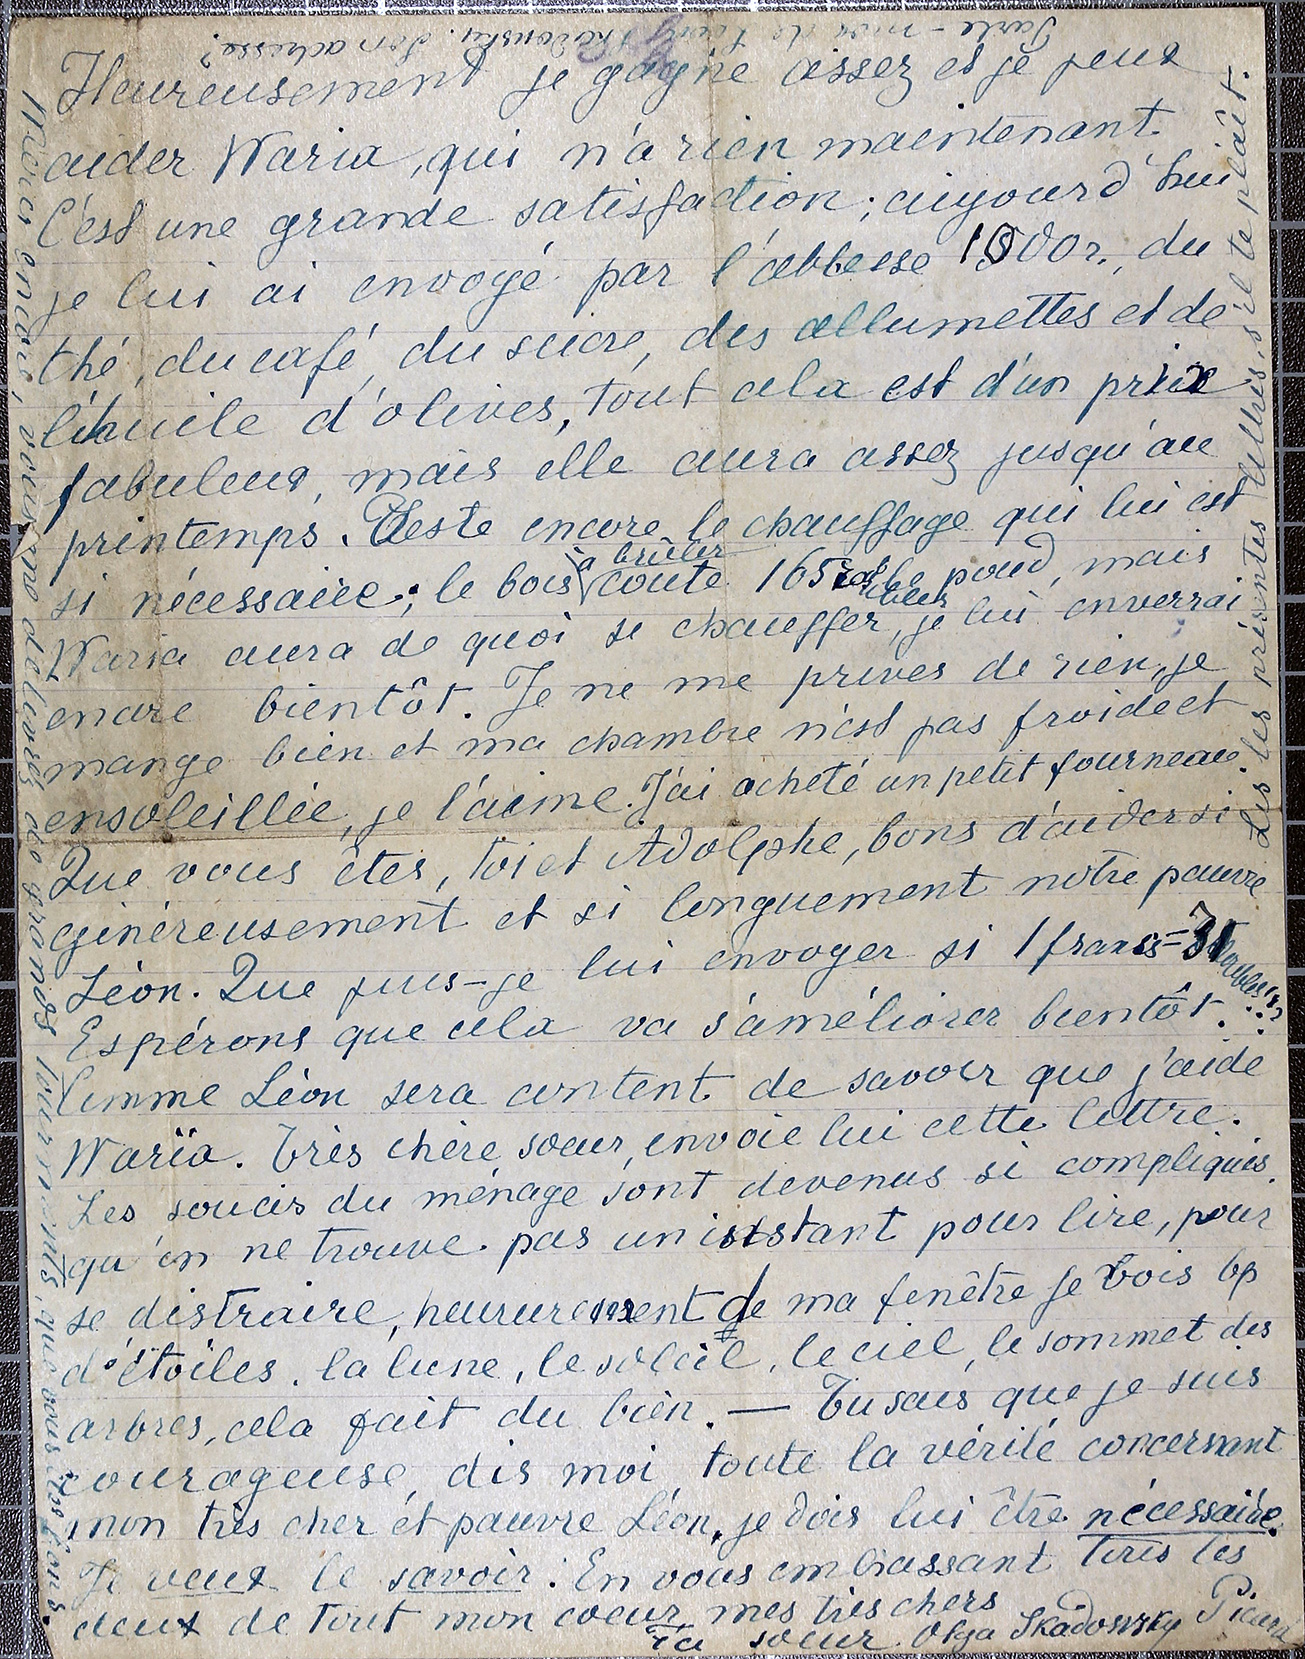 Parle-moi de Skadowsky. Son adresse?
Heureusement je gagne assez et je peux
aider Waria, qui n'a rien maintenant.
C'est une grande satisfaction; aujourd'hui
je lui ai envoyé par l'abbesse 1500r., du
thé, du café, du sucre, des allumettes et de
l'huile d'olives, tout cela est d'un prix
fabuleux, mais elle aura assez jusqu'au
printemps. Reste encore le chauffage qui lui est
si nécessaire; le bois à brûler coute 165 le poud, mais
Waria aura de quoi se chauffer, je lui enverrai
encore bientôt. Je ne me prives de rien, je
mange bien et ma chambre n'est pas froide et
ensoleillée, je l'aime. J'ai acheté un petit fourneau.
Que vous êtes, toi et Adolphe, bons d'aider si
généreusement et si longuement notre pauvre
Léon. Que puis-je lui envoyer si 1 francs=31 roubles!!?
Espérons que cela va s'améliorer bientôt...
Comme Léon sera content de savoir que j'aide
Waria. Très chère soeur, envoie lui cette lettre.
Les soucis du ménage sont devenus si compliqués
qu'on ne trouve pas un instant pour lire, pour
se distraire, heureurement de ma fenêtre je vois bp
d'étoiles, la lune, le soleil, le ciel, le sommet des
arbres, cela fait du bien. — Tu sais que je suis
courageuse, dis moi toute la vérité concernant
mon très cher et pauvre Léon, je dois lui être nécessaire.
Je veux le savoir. En vous embrassant tous les
deux de tout mon coeur mes très chers
Ta soeur Olga Skadowsky Picard
Merci encore, vous me délivrez de grands tourments, que vous êtes bons.
Lis les présentes lettres, s'il te plaît.